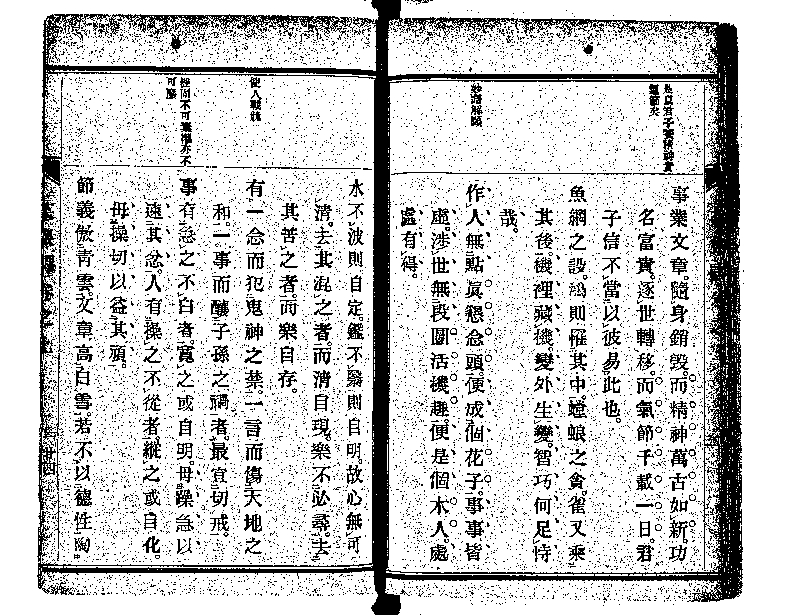 事業文章。隨身銷毀。而精神萬古如新。功
名富貴。逐世轉移。而氣節千載一日。君
子信不當以彼易此也。
魚網之設。鴻則罹其中。螳螂之貪。雀又乘
其後。機裡藏機。變外生變。智巧何足恃
哉。
作人無點眞懇念頭。便成個花子。事事皆
虛。涉世無段圓活機趣。便是個木人。處
處有得。
水不波則自定。鑑不翳則自明。故心無可
清。去其混之者。而清自現。樂不必尋。去
其苦之者。而樂自存。
有一念而犯鬼神之禁。一言而傷天地之
和。一事而釀子孫之禍者。最宜切戒。
事有急之不白者。寬之或自明。毋躁急以
速其忿。人有操之不從者。縱之或自化。
毋操切以益其頑。
節義傲青雲。文章高白雪。若不以德性陶